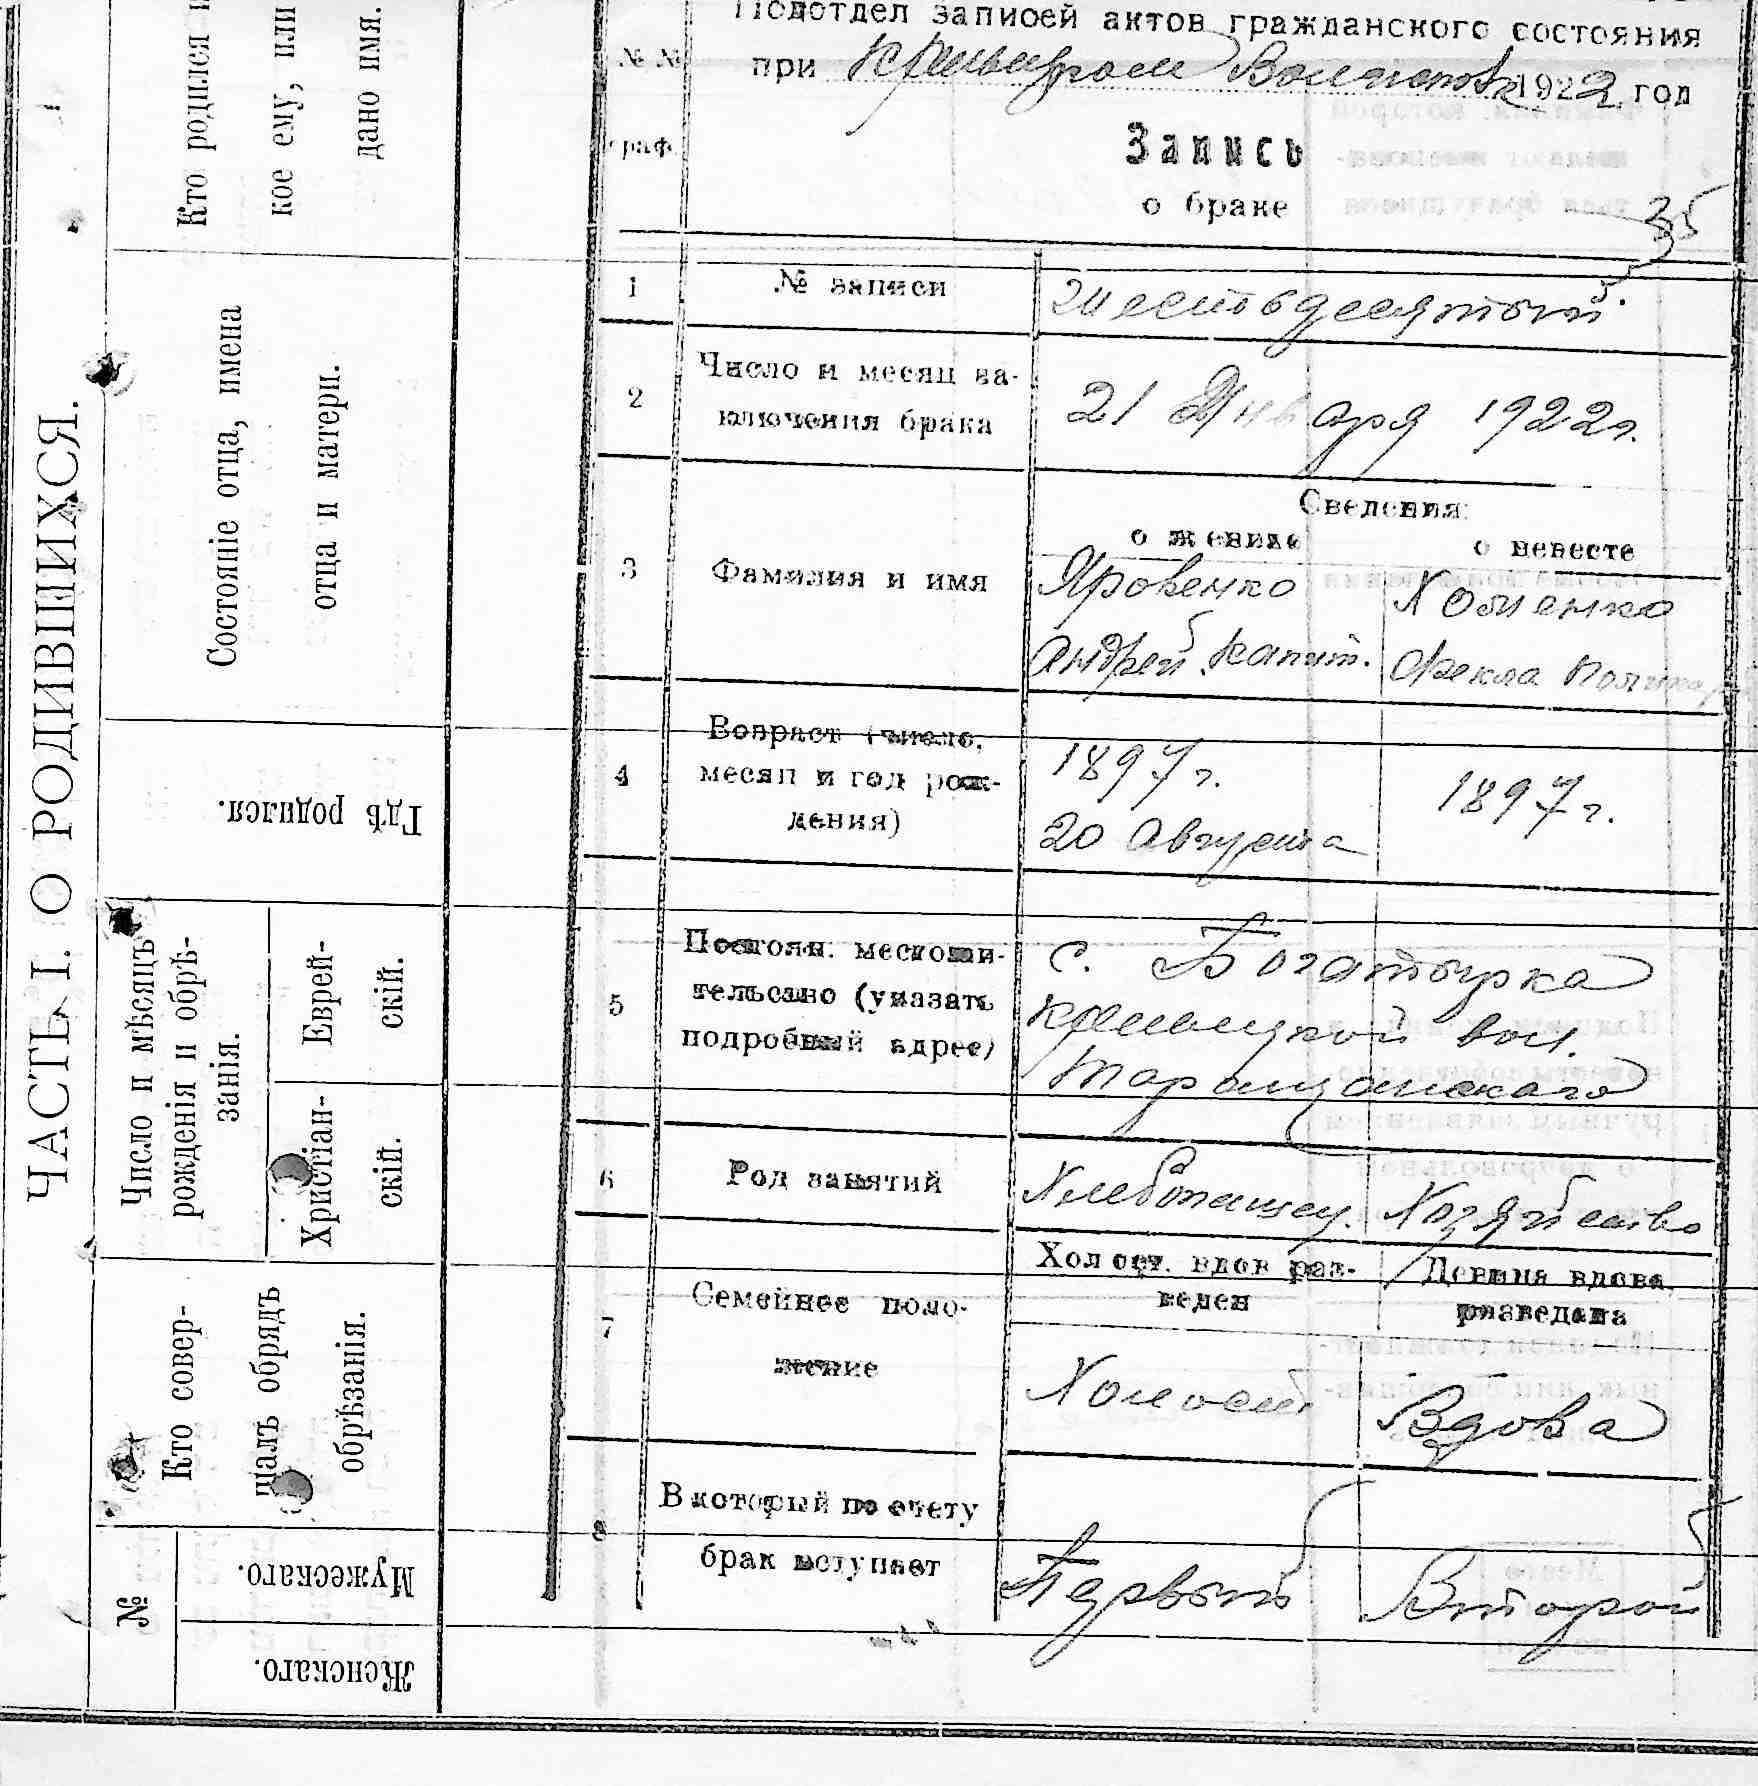 ЧАСТЬ I. О РОДИВШИХСЯ.
Кто родился и
кое ему, или
дано имя.
Состояніе отца, имена
отца и матери.
Гдѣ родился.
Число и мѣсяцъ
рожденія и обрѣ-
занія.
Еврей-
скій.
Христіан-
скій.
Кто совер-
шалъ обрядъ
обрѣзанія.
№
Мужескаго.
Женскаго.
Подотдел записей актов гражданского состояния
при 1922 год
№№
граф.
Запись
о браке
35
1 № записи
шестьдесятый
2 Число и месяц за-
ключения брака
21 Января 1922г.
Сведения:
о женихе о невесте
3 Фамилия и имя
Яровенко Хоменко
Андрей Капит. Фекла
4 Возраст (число,
месяц и год рож-
дения)
1897г. 1897г.
20 Августа
5 Постоян. местожи-
тельство (указать
подробный адрес)
с. Богатырка
Кривецкой вол.
Таращанскаго
6 Род занятий
Хлебопашец. Хозяйство
7 Семейное поло-
жение
Холост. вдов раз-
веден
Девица вдова
разведена
Холост. Вдова
8 В который по счету
брак вступает
Первый Второй